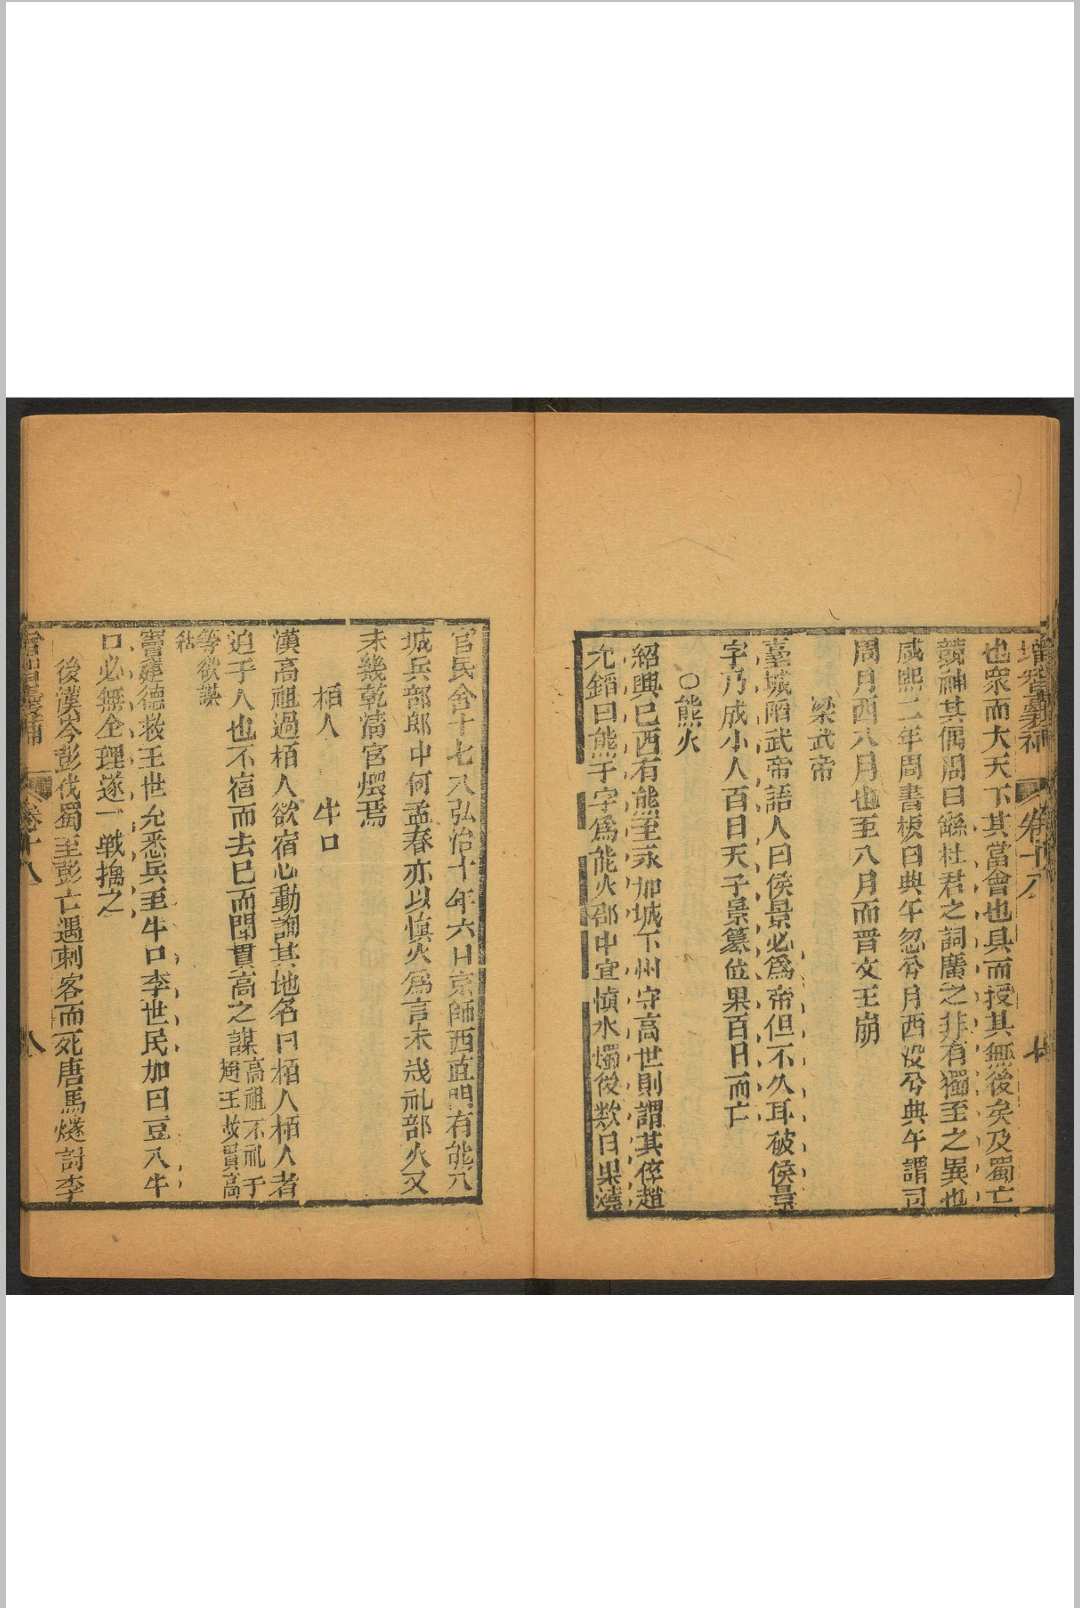 增智囊補 卷廿八 七
也衆而大天下其當會也具而授其無後矣及蜀亡
競神其偶周曰緜杜君之詞廣之非有獨至之異也
咸熙二年周書板曰典午忽兮月酉没兮典午謂司
馬月酉八月也至八月而晋文王崩
梁武帝
臺城陷武帝語人曰侯景必爲帝但不久耳破侯景
字乃成小人百日天子景篡位果百日而亡
○熊火
紹興已酉有熊至永加城下州守高世則謂其倅趙
允䥧曰熊于字爲能火郡中宜慎水燭後数日果燒
官民舍十七八弘治十年六日京師西直門有能入
城兵部郎中何孟春亦以慎火爲言未幾礼部火又
未幾乾清宮燬焉
栢人 牛口
漢高祖過栢人欲宿心動詢其地名曰栢人栢人者
迫于人也不宿而去已而聞貫高之謀高祖不礼于
趙王故貫高
等欲謀
竇建德救王世允悉兵至牛口李世民加曰豆入牛
口必無全理遂一戰擒之
後漢岑彭伐蜀至彭亡遇刺客而死唐馬燧討李
增智囊補 卷廿八 八